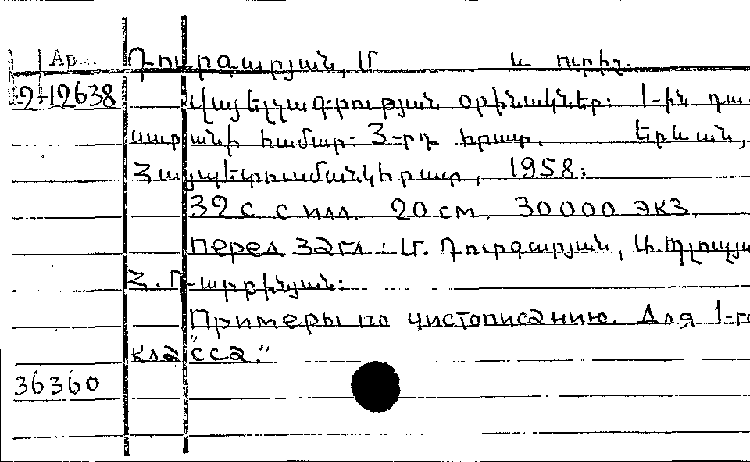 Ар. Դուրգարյան, Մ և ուրիշ.
2-12638 Վայելչագրության օրինակներ: 1-ին դա
սարանի համար: 3-րդ հրատ. Երևան,
Հայպետուսմանկհրատ, 1958:
32 с. с илл. 20 см. 30000 экз.
перед загл.: Մ. Դուրգարյան,
Հ.
Примеры по чистописанию. Для 1-го
класса."
36360